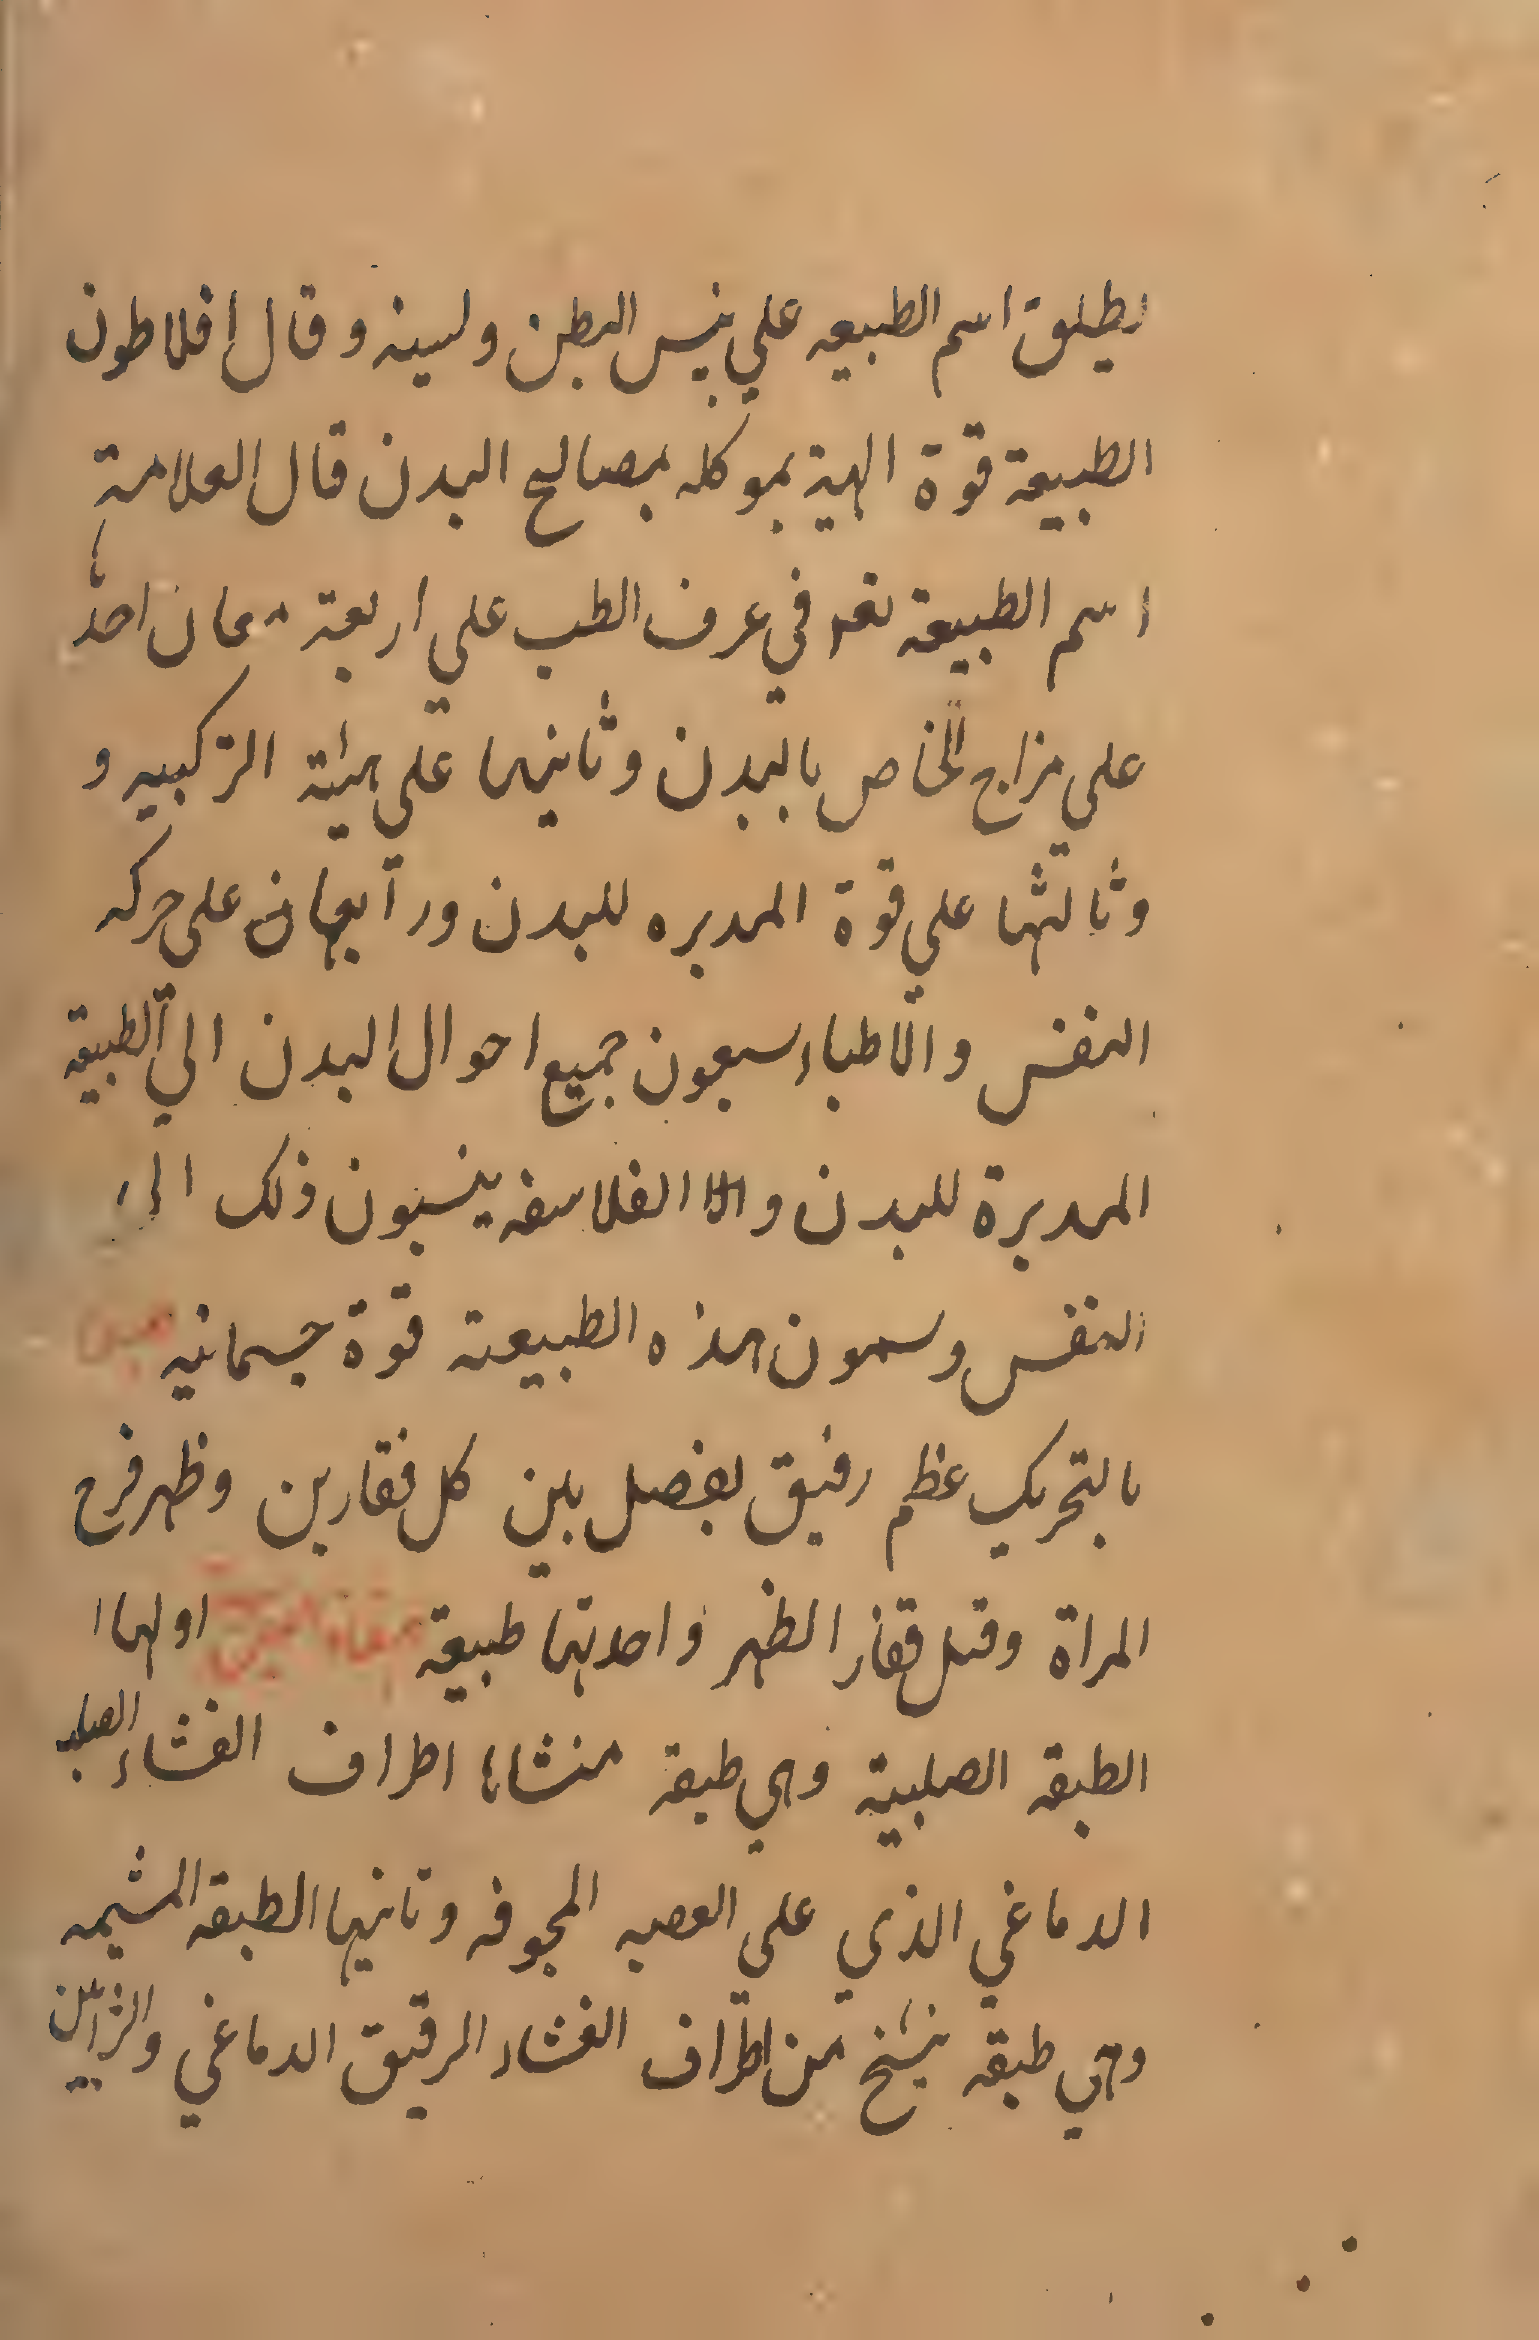 يطلق اسم الطبيعه علي يبس البطن ولسينه وقال افلاطون
الطبيعة قوة الهية موكله بمصالح البدن قال العلامة
اسم الطبيعة في عرف الطب علي اربعة معان احدها
علي مزاج الخاص بالبدن وثانيها علي هيئة التركيبيه و
وثالثها علي قوة المدبره للبدن ورابعها علي حركه
النفس والاطباء ينسبون جميع احوال البدن الي الطبيعة
المدبرة للبدن و الفلاسفه ينسبون ذلك الي
النفس ويسمون هذه الطبيعة قوة جسمانيه
بالتحريك عظم رقيق يفصل بين كل فقارين وظهر فرج
المراة وقيل فقار الظهر واحدتها طبيعة اولها
الطبقة الصلبية وهي طبقة منشاها اطراف الغشاء الصلب
الدماغي الذي علي العصبه المجوفه وثانيها الطبقه المشيمه
وهي طبقه ينسخ من اطراف الغشاء الرقيق الدماغي والشرايين